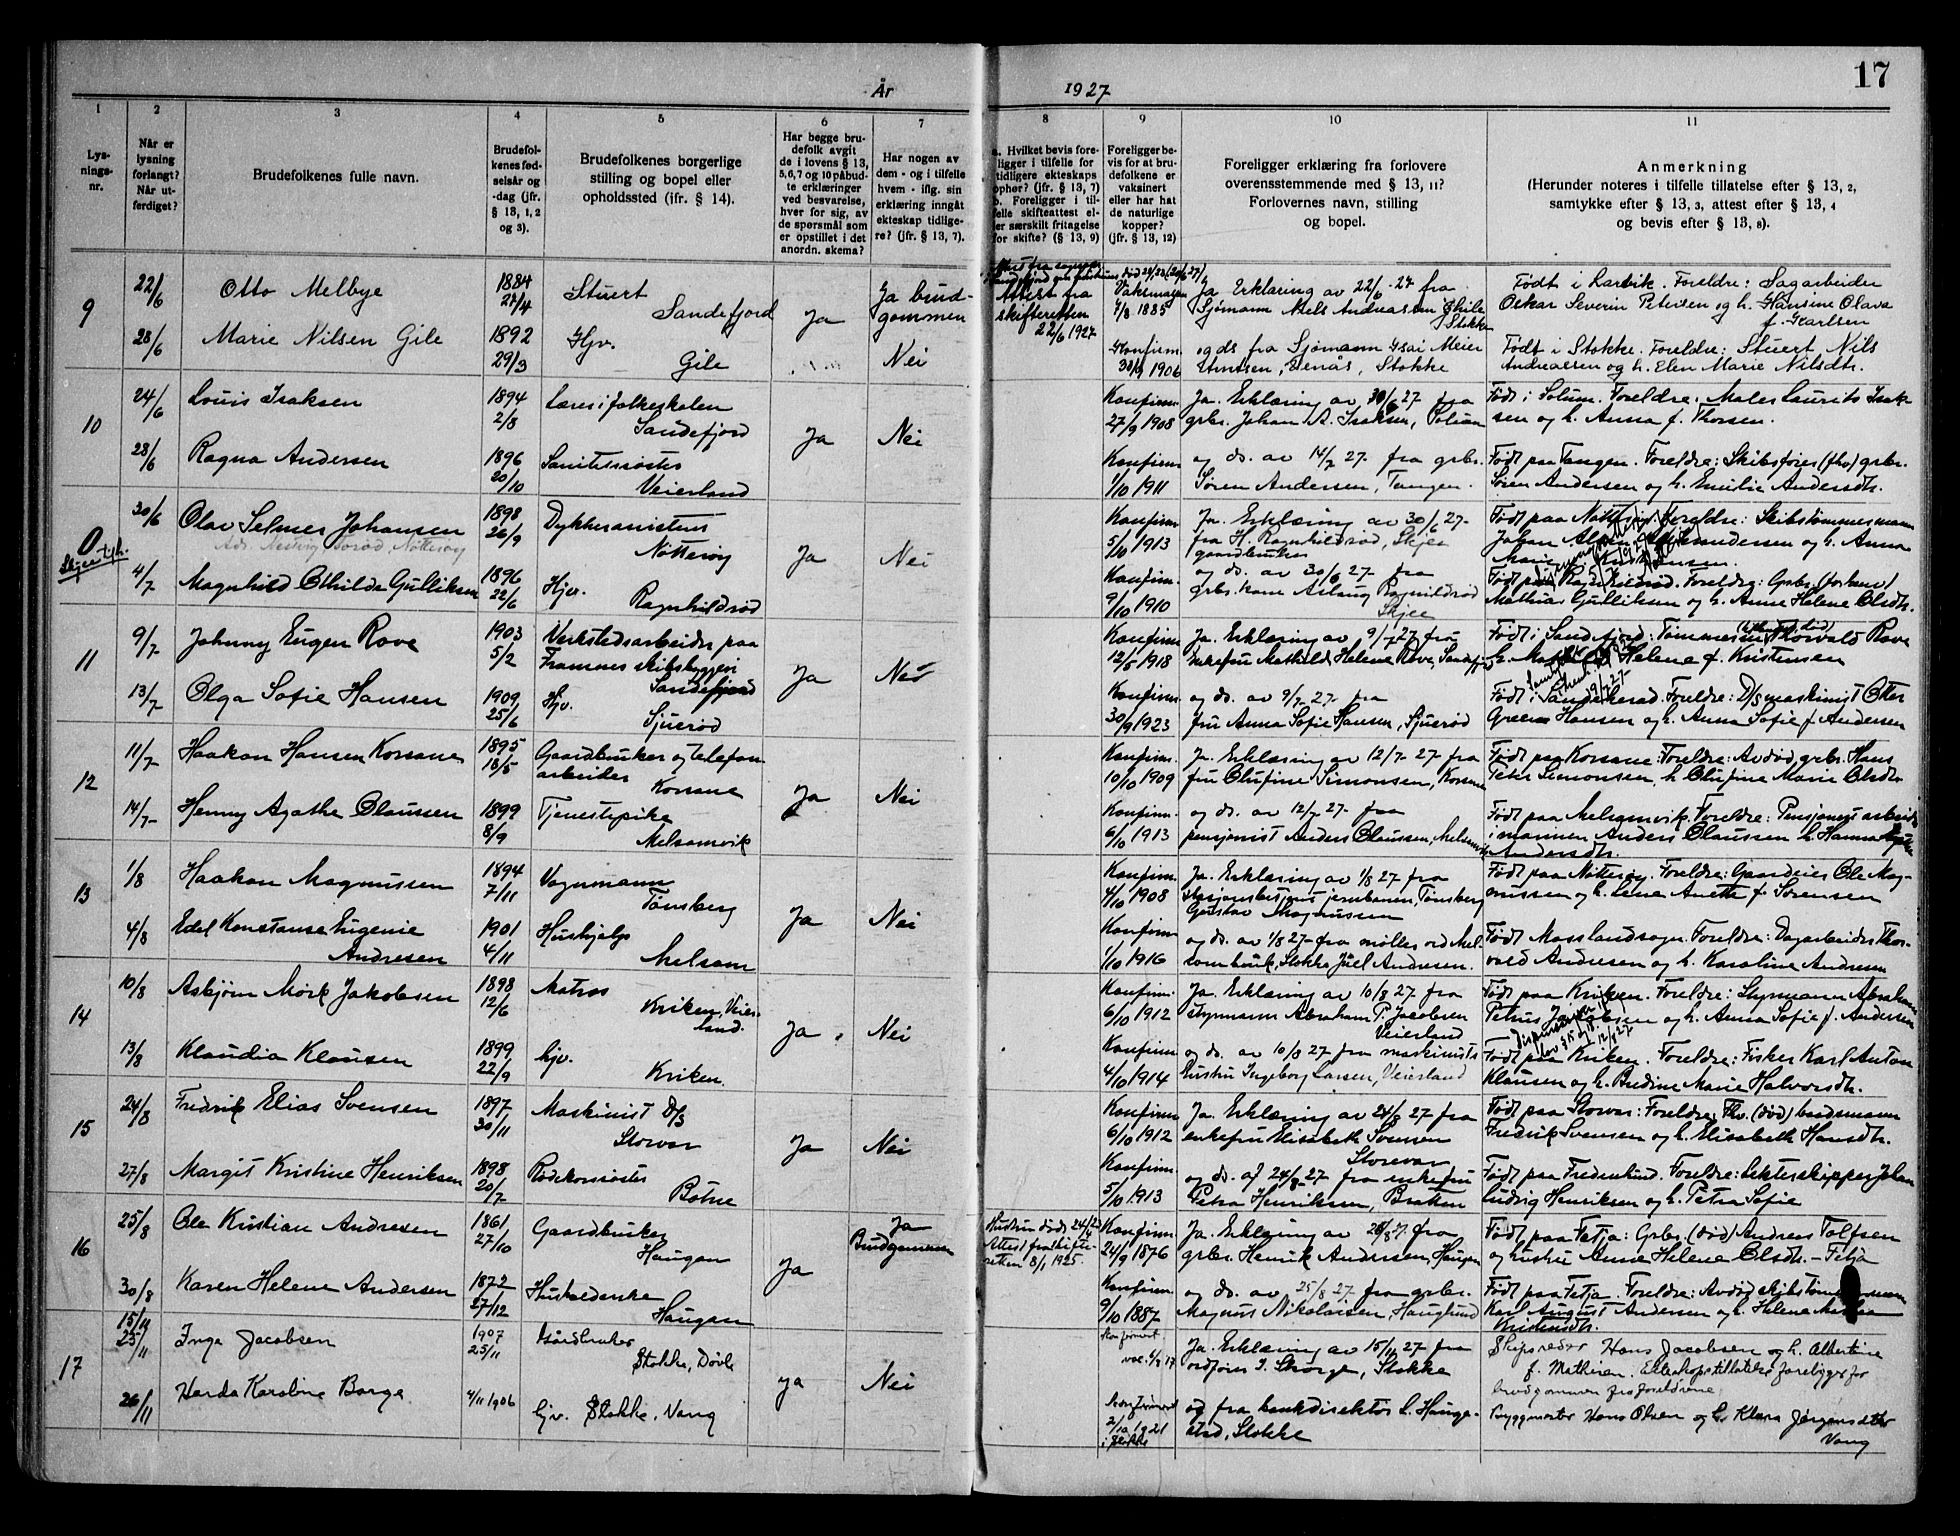 17
År 1927
1
Lys-
nings-
nr.
2
Når er
lysning
forlangt?
Når ut-
ferdiget?
3
Brudefolkenes fulle navn.
4
Brudefol-
kenes fød-
selsår og
-dag (jfr.
§ 13, 1, 2
og 3).
5
Brudefolkenes borgerlige
stilling og bopel eller
opholdssted (ifr. § 14).
6
Har begge bru-
defolk avgit
de i lovens § 13,
5,6,7 og 10 påbud-
te erklæringer
ved besvarelse,
hver for sig, av
de spørsmål som
er opstillet i det
anordn. skema?
7
Har nogen av
dem - og i tilfelle
hvem - iflg. sin
erklæring inngåt
ekteskap tidlige-
re? (jfr. § 13, 7).
8
a. Hvilket bevis fore-
ligger i tilfelle for
tidligere ekteskaps
ophør? (jfr. § 13, 7)
b. Foreligger i til-
felle skifteattest el-
ler særskilt fritagelse
for skifte? (§ 13, 9)
9
Foreligger be-
vis for at bru-
defolkene er
vaksinert
eller har hat
de naturlige
kopper?
(jfr. § 13, 12)
10
Foreligger erklæring fra forlovere
overensstemmende med § 13, 11?
Forlovernes navn, stilling
og bopel.
11
Anmerkning
(Herunder noteres i tilfelle tillatelse efter § 13, 2,
samtykke efter § 13, 3, attest efter § 13, 4
og bevis efter § 13, 8).
9
22/6 Otto Melbye 1884 27/4 Stuert Sandefjord Ja Ja brud-
gommen
Attest fra
skifteretten
22/6 1927
4/8 1885 Ja Erklæring av 22/6 27 fra
Sjømann Niels Andreassen Gile
Stokke
Født i Larvik. Foreldre: Sagarbeider
Oskar Severin Petersen og h. Hansine Olava
f. Karlsen
28/6 Marie Nilsen Gile 1892 29/3 Hjv. Gile Nei
Konfirm. 1906 og ds fra Sjømann Isai Meier
Stokke
Født i Stokke. Foreldre: Stuert Nils
Andreassen og h. Elen Marie Nilsdtr.
10
24/6 Louis Isaksen 1894 2/8 Lærer i folkeskolen
Sandefjord Ja Nei
Konfirm. 27/9 1908 Ja. Erklæring av 30/6 27 fra
grbr. Johan A. Isaksen,
Født i Solum. Foreldre: Maler Laurits Isak-
sen og h. Anna f. Thorsen.
28/6 Ragna Andersen 1896 20/10 Sanitetssøster
Veierland
Konfirm. 1/10 1911 og ds. av 14/7 27. fra grbr.
Søren Andersen, Tangen.
Født paa Tangen. Foreldre: Skibsfører (fhv) grbr.
Søren Andersen og h. Emilie Andersdtr.
0
30/6 Olav Selmer Johansen 1898 26/9 Nøtterøy Ja Nei
Konfirm. 5/10 1913 Ja. Erklæring av 30/6 27-
fra H. Ragnhildrød, Skjee
gaardbruker
Født paa Nøtterøy. Foreldre: Skibstømmermann
Johan
4/7 Magnhild Othilde Gulliksen 1896 22/6 Hjv. Ragnhildrød
Konfirm. 9/10 1910 og ds. av 30/6 27. fra
grbr. kone Aslaug Ragnhildrød
Skjee
Født paa Ragnhildrød. Foreldre: Grbr. (forhen)
Mathias Gulliksen og h. Anne Helene Olsdtr.
11
9/7 Johnny Eugen Rove 1903 5/2 Verkstedsarbeider paa
Framnes skibsbyggeri
Sandefjord Ja Nei
Konfirm. 12/5 1918 Ja. Erklæring av 9/7 27 fra
Enkefru Mathilde Helene Rove, Sandefjord
Født i Sandefjord: Thorvald Rove
h. Mathilde Helene f. Kristensen
13/7 Olga Sofie Hansen 1909 25/6 Hjv. Sjuerød
Konfirm. 30/9 1923 og ds. av 9/7 27. fra
fru Anna Sofie Hansen, Sjuerød
Født i Sandeherad. Foreldre: D/S maskinist Otter
Green Hansen og h. Anna Sofie f. Andersen
12
11/7 Haakon Hansen Korsane 1895 18/5 Gaardbruker og telefon-
arbeider
Korsane Ja Nei
Konfirm. 10/10 1909 Ja. Erklæring av 12/7 27 fra
fru Olufine Simonsen, Korsane
Født paa Korsane. Foreldre: Avdød grbr. Hans
Peter Simonsen, h. Olufine Marie Olsdtr.
14/7 Henny Agathe Olaussen 1899 8/9 Tjenestepike
Melsomvik
Konfirm. 6/10 1913 og ds. av 12/7 27. fra
pensjonist Anders Olaussen, Melsomvik
Født paa Melsomvik. Foreldre:
Anders Olaussen h. Hanna
Andersdtr.
13
1/8 Haakon Magnussen 1894 7/11 Vognmann
Tønsberg Ja Nei
Konfirm. 4/10 1908 Ja. Erklæring av 1/8 27 fra
stasjonsbetjent jernbanen, Tønsberg
Gustav Magnussen
Født paa Nøtterøy. Foreldre: Gaardeier Ole Mag-
nussen og h. Lene Anette f. Sørensen
4/8 Edel Konstanse Eugenie
Andresen 1901 4/11 Hushjelp
Melsom
Konfirm. 1/10 1916 og ds. av 1/8 27 fra møller ved Mel-
sombruk, Stokke Juel Andresen.
Født Moss landsogn. Foreldre: Dagarbeider Thor-
vald Andresen og h. Karoline Andresen
14
10/8 Asbjørn Mørk Jakobsen 1898 12/6 Matros
Kriken, Veier-
land. Ja. Nei
Konfirm. 6/10 1912 Ja. Erklæring av 10/8 27 fra
styrmann Abraham P. Jacobsen
Veierland
Født paa Kriken. Foreldre: Styrmann Abraham
Petrus Jakobsen og h. Anna Sofie f. Andersen
13/8 Klaudia Klausen 1899 22/9 hjv. Kriken.
Konfirm. 4/10 1914 og ds. av 10/8 27 fra maskinists
hustru Ingeborg Larsen, Veierland
Født paa Kriken. Foreldre: Fisker Karl Anton
Klausen og h. Bredine Marie Halvorsdtr.
15
24/8 Fredrik Elias Svensen 1897 30/11 Maskinist D/S
Storvar Ja Nei
Konfirm. 6/10 1912 Ja. Erklæring av 24/8 27 fra
enkefru Elisabeth Svensen
Storevar
Født paa Storvar: Foreldre: Fhv. (død) baadsmann
Fredrik Svensen og h. Elisabeth Hansdtr.
27/8 Margit Kristine Henriksen 1898 20/7 Rødekorssøster
Botne
Konfirm. 5/10 1913 og ds. af 24/8 27 fra enkefru
Petra Henriksen, Braken
Født paa Fredenlund. Foreldre: Lekterskipper Johan
Ludvig Henriksen og h. Petra Sofie
16
25/8 Ole Kristian Andresen 1861 27/10 Gaardbruker
Haugan Ja Ja
Brudgommen
Hustru død 24/4 23
Attest fra skifte-
retten 8/1 1925.
Konfirm. 24/9 1876 Ja. Erklæring av 26/8 27. fra
grbr. Henrik Andersen, Haugan
Født paa Fetja: Grbr. (død) Andreas Tolfsen
og hustru Anne Helene Olsdtr. - Fetja
30/8 Karen Helene Andersen 1872 27/12 Husholderske
Haugan
Konfirm. 9/10 1887 og ds. av 25/8 27. fra grbr.
Magnus Nikolaisen, Hauglund
Født paa Fetja. Foreldre: Avdød skibstømmermann
Karl August Andersen og h. Helene
Kristensdtr.
17
15/11
25/11 Inga Jacobsen 1907 25/11 Gårdbruker
Stokke, Døvle ja Nei
Konfirmert
vac. 4/9 17 Ja. Erklæring av 15/11 27 fra
ordfører I. Skorge, Stokke
Skipsreder Hans Jacobsen og h. Albertine
f. Mathisen. Ekteskapstillatelse foreligger for
brudgommen fra foreldrene
26/11 Herda Karoline Borge 4/11 1906 hjv. Stokke, Vang
Konfirmert
2/10 1921
i Stokke og fra bankdirektør L. Hauge-
stad, Stokke
Byggmester Hans Olsen og h. Klara Jørgensdtr
Vang